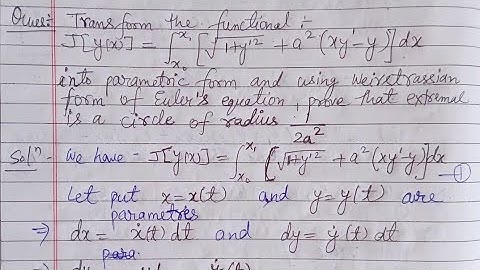 Ques:- Transform the functional :-
J[y(x)] = ∫_{x₀}^{x₁} [√1+y'² + a²(xy'-y)] dx
into parametric form and using weirstrassian
form of Euler's equation, prove that extremal
is a circle of radius 1/2a²
Solⁿ- We have - J[y(x)] = ∫_{x₀}^{x₁} [√1+y'² + a²(xy'-y)] dx —①
Let put x = x(t) and y = y(t) are
parametres
⇒ dx = ẋ(t) dt and dy = ẏ(t) dt
para